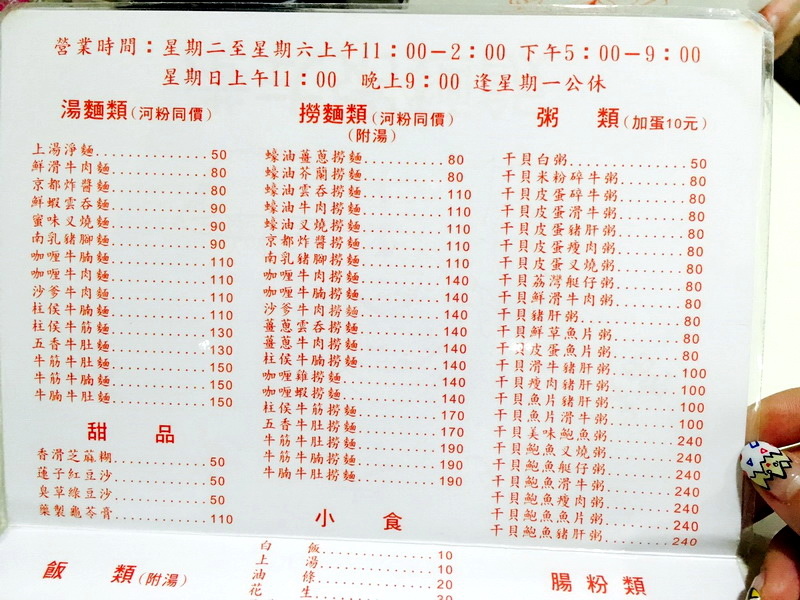 營業時間：星期二至星期六上午11：00－2：00 下午5：00－9：00
星期日上午11：00 晚上9：00 逢星期一公休
湯麵類(河粉同價)
上湯淨麵............50
鮮滑牛肉麵............80
京都炸醬麵............80
鮮蝦雲吞麵............90
蜜味叉燒麵............90
南乳豬腳麵............90
咖喱牛腩麵............110
咖喱牛肉麵............110
沙爹牛肉麵............110
柱侯牛腩麵............110
柱侯牛筋麵............130
五香牛肚麵............130
牛筋牛肚麵............150
牛筋牛腩麵............150
牛腩牛肚麵............150
甜 品
香滑芝蔴糊............50
蓮子紅豆沙............50
臭草綠豆沙............50
藥製龜苓膏............110
飯 類(附湯)
撈麵類(河粉同價)
(附湯)
蠔油薑蔥撈麵............80
蠔油芥蘭撈麵............80
蠔油雲吞撈麵............110
蠔油牛肉撈麵............110
蠔油叉燒撈麵............110
京都炸醬撈麵............110
南乳豬腳撈麵............110
咖喱牛肉撈麵............140
咖喱牛腩撈麵............140
沙爹牛肉撈麵............140
薑蔥雲吞撈麵............140
薑蔥牛肉撈麵............140
柱侯牛腩撈麵............140
咖喱雞撈麵............140
咖喱蝦撈麵............140
柱侯牛筋撈麵............170
五香牛肚撈麵............170
牛筋牛肚撈麵............190
牛筋牛腩撈麵............190
牛腩牛肚撈麵............190
小 食
白 飯............10
上 湯............10
油 條............20
花 生............30
粥 類(加蛋10元)
干貝白粥............50
干貝米粉碎牛粥............80
干貝皮蛋碎牛粥............80
干貝皮蛋滑牛粥............80
干貝皮蛋豬肝粥............80
干貝皮蛋瘦肉粥............80
干貝皮蛋叉燒粥............80
干貝荔灣艇仔粥............80
干貝鮮滑牛肉粥............80
干貝豬肝粥............80
干貝鮮草魚片粥............80
干貝皮蛋魚片粥............80
干貝滑牛豬肝粥............100
干貝瘦肉豬肝粥............100
干貝魚片豬肝粥............100
干貝魚片滑牛粥............100
干貝美味鮑魚粥............240
干貝鮑魚叉燒粥............240
干貝鮑魚艇仔粥............240
干貝鮑魚滑牛粥............240
干貝鮑魚瘦肉粥............240
干貝鮑魚魚片粥............240
干貝鮑魚豬肝粥............240
腸粉類